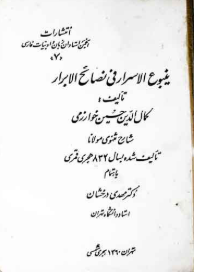 انتشارات
انجمن استادان زبان و ادبیات فارسی
«۷»
ینبوع الاسرار فی نصائح الابرار
تألیف:
کمال الدین حسین خوارزمی
شارح مثنوی مولانا
تألیف شده بسال ۸۳۲ هجری قمری
باهتمام
دکتر مهدی درخشان
استاد دانشگاه تهران
تهران ۱۳۶۰ هجری شمسی